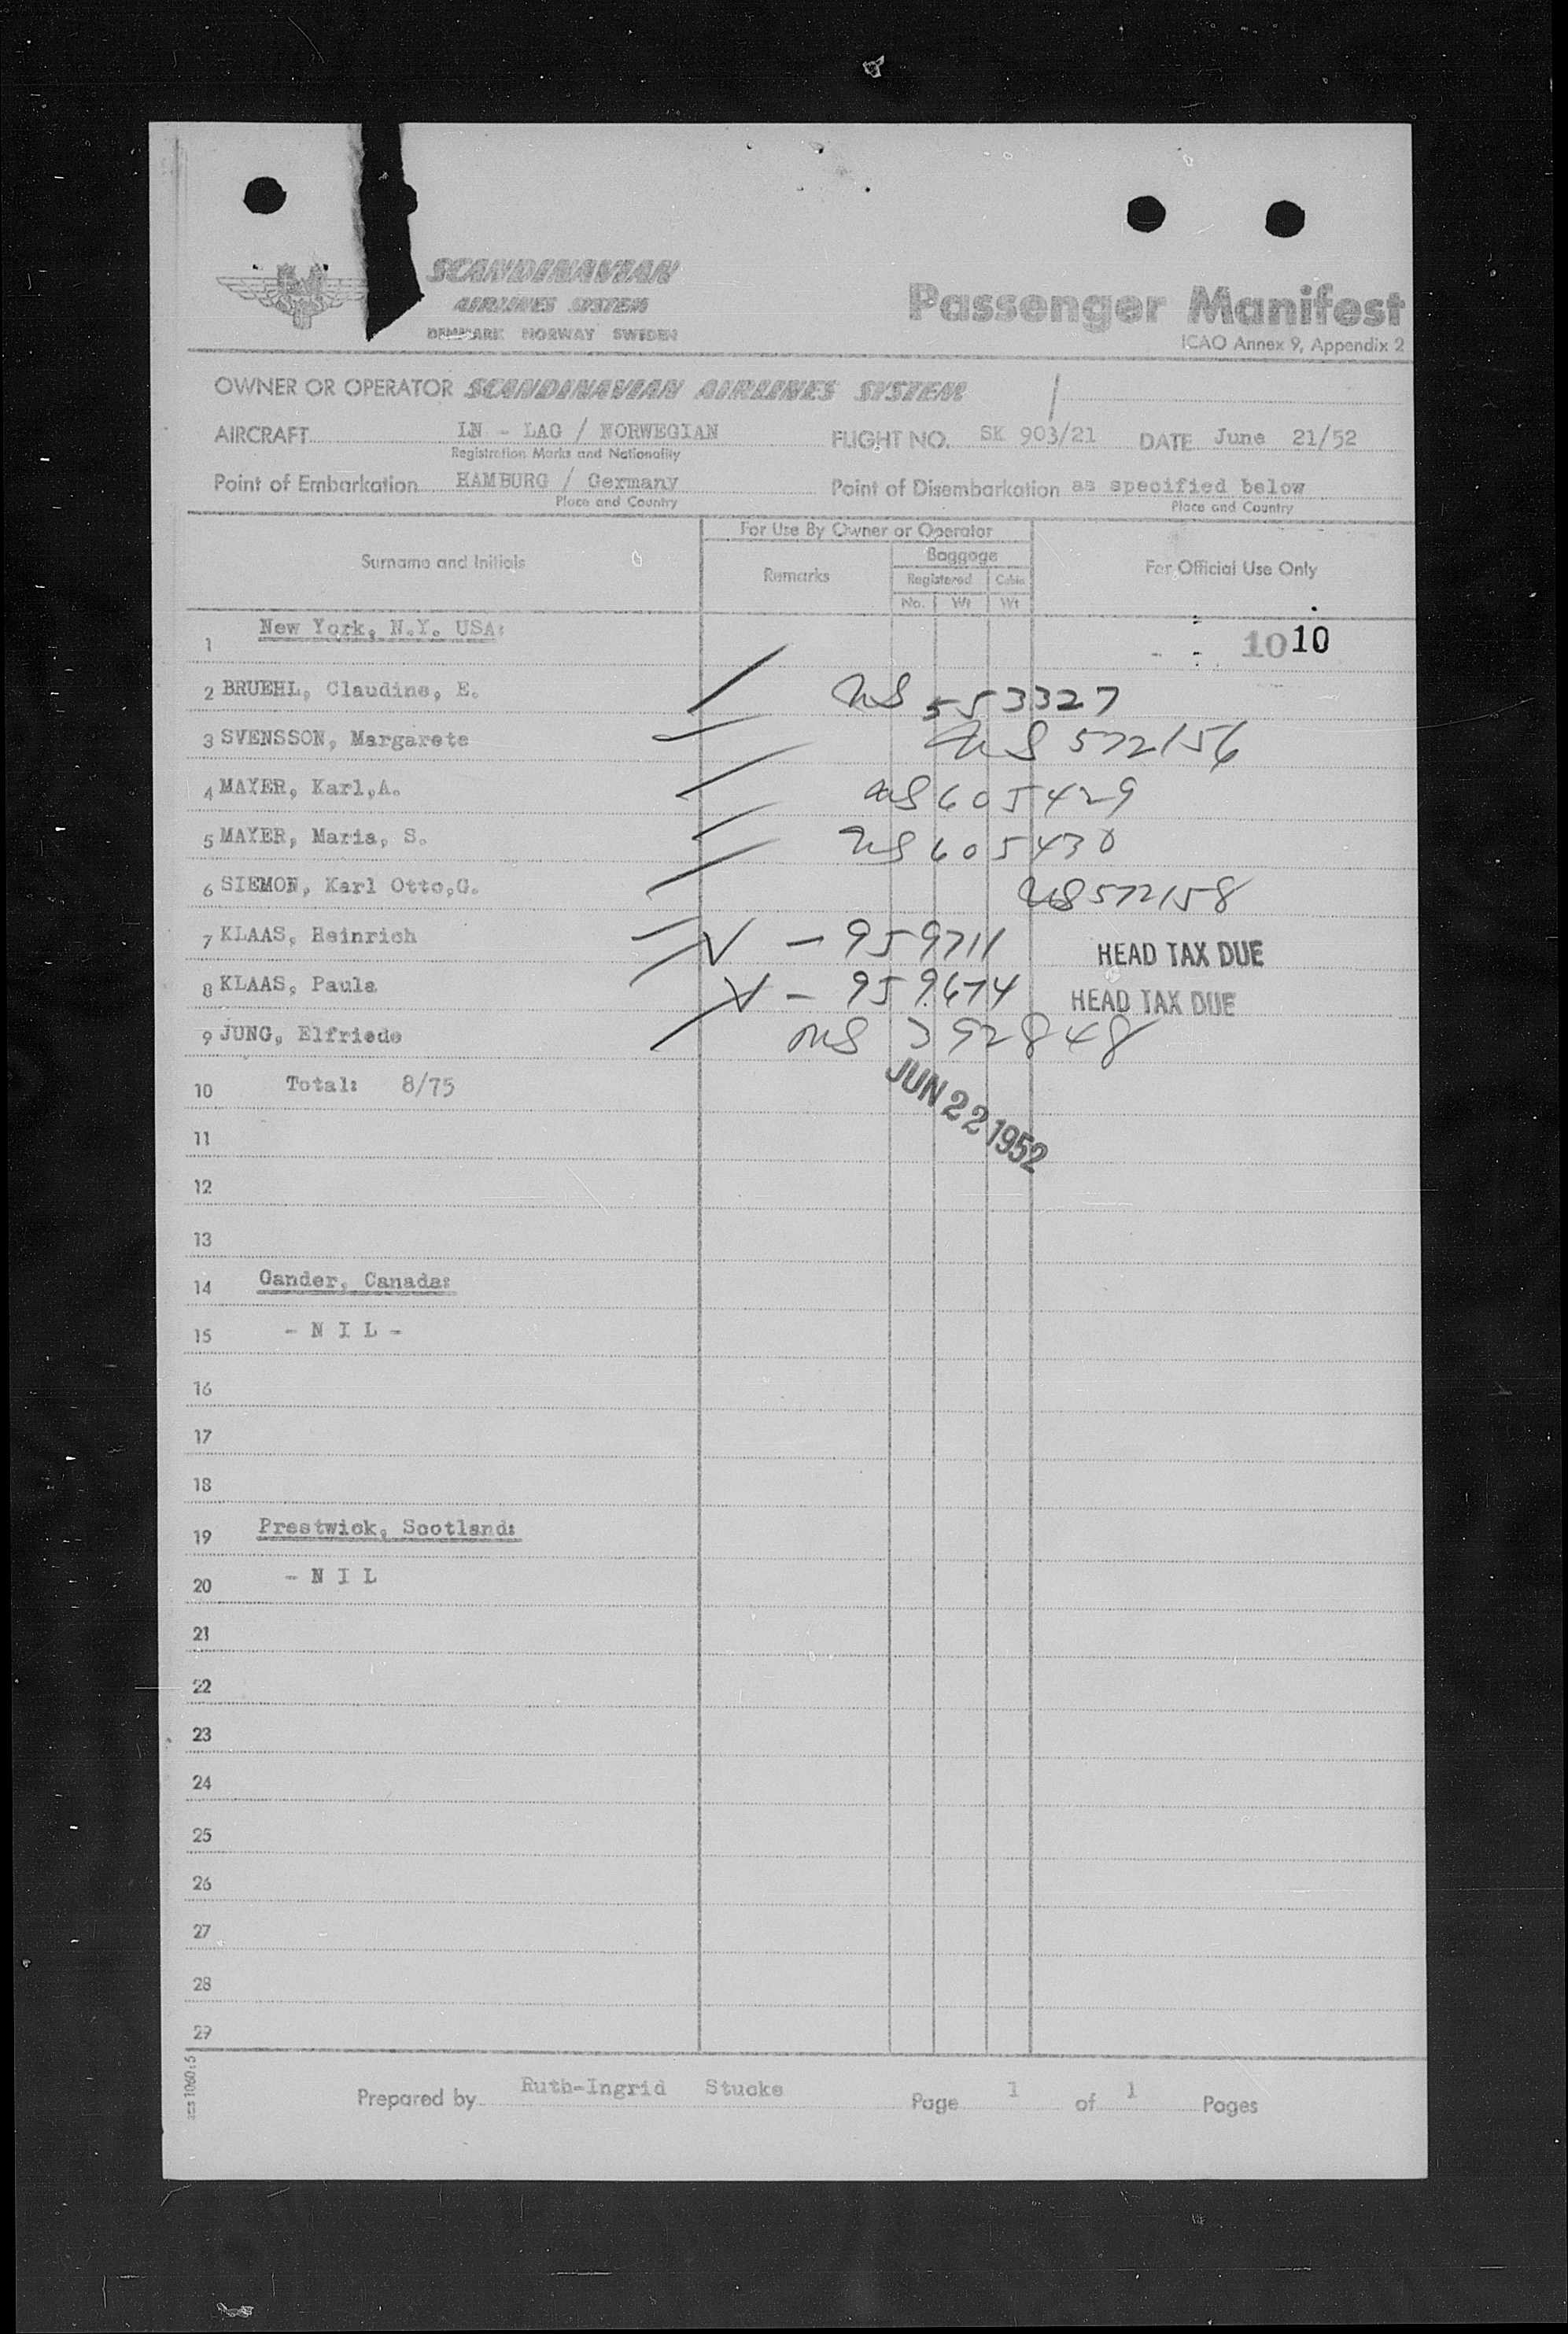 SCANDINAVIAN
AIRLINES SYSTEM
DENMARK NORWAY SWEDEN
Passenger Manifest
ICAO Annex 9, Appendix 2
OWNER OR OPERATOR SCANDINAVIAN AIRLINES SYSTEM
AIRCRAFT LN - LAG / NORWEGIAN FLIGHT NO. SK 903/21 DATE June 21/52
Registration Marks and Nationality
Point of Embarkation HAMBURG / Germany Point of Disembarkation as specified below
Place and Country Place and Country
For Use By Owner or Operator
Surname and Initials Remarks Baggage For Official Use Only
Registered Cabin
No. Wt Wt
1 New York, N.Y. USA: 10 10
2 BRUEHL, Claudine, E. US 553327
3 SVENSSON, Margarete US 572156
4 MAYER, Karl,A. US 605429
5 MAYER, Maria, S. US 605430
6 SIEMON, Karl Otto,G. US 572158
7 KLAAS, Heinrich V - 959711 HEAD TAX DUE
8 KLAAS, Paula V - 959674 HEAD TAX DUE
9 JUNG, Elfriede US 392848
10 Total: 8/75
JUN 22 1952
11
12
13
14 Gander, Canada:
15 - N I L -
16
17
18
19 Prestwick, Scotland:
20 - N I L
21
22
23
24
25
26
27
28
29
Prepared by Ruth-Ingrid Stucke Page 1 of 1 Pages